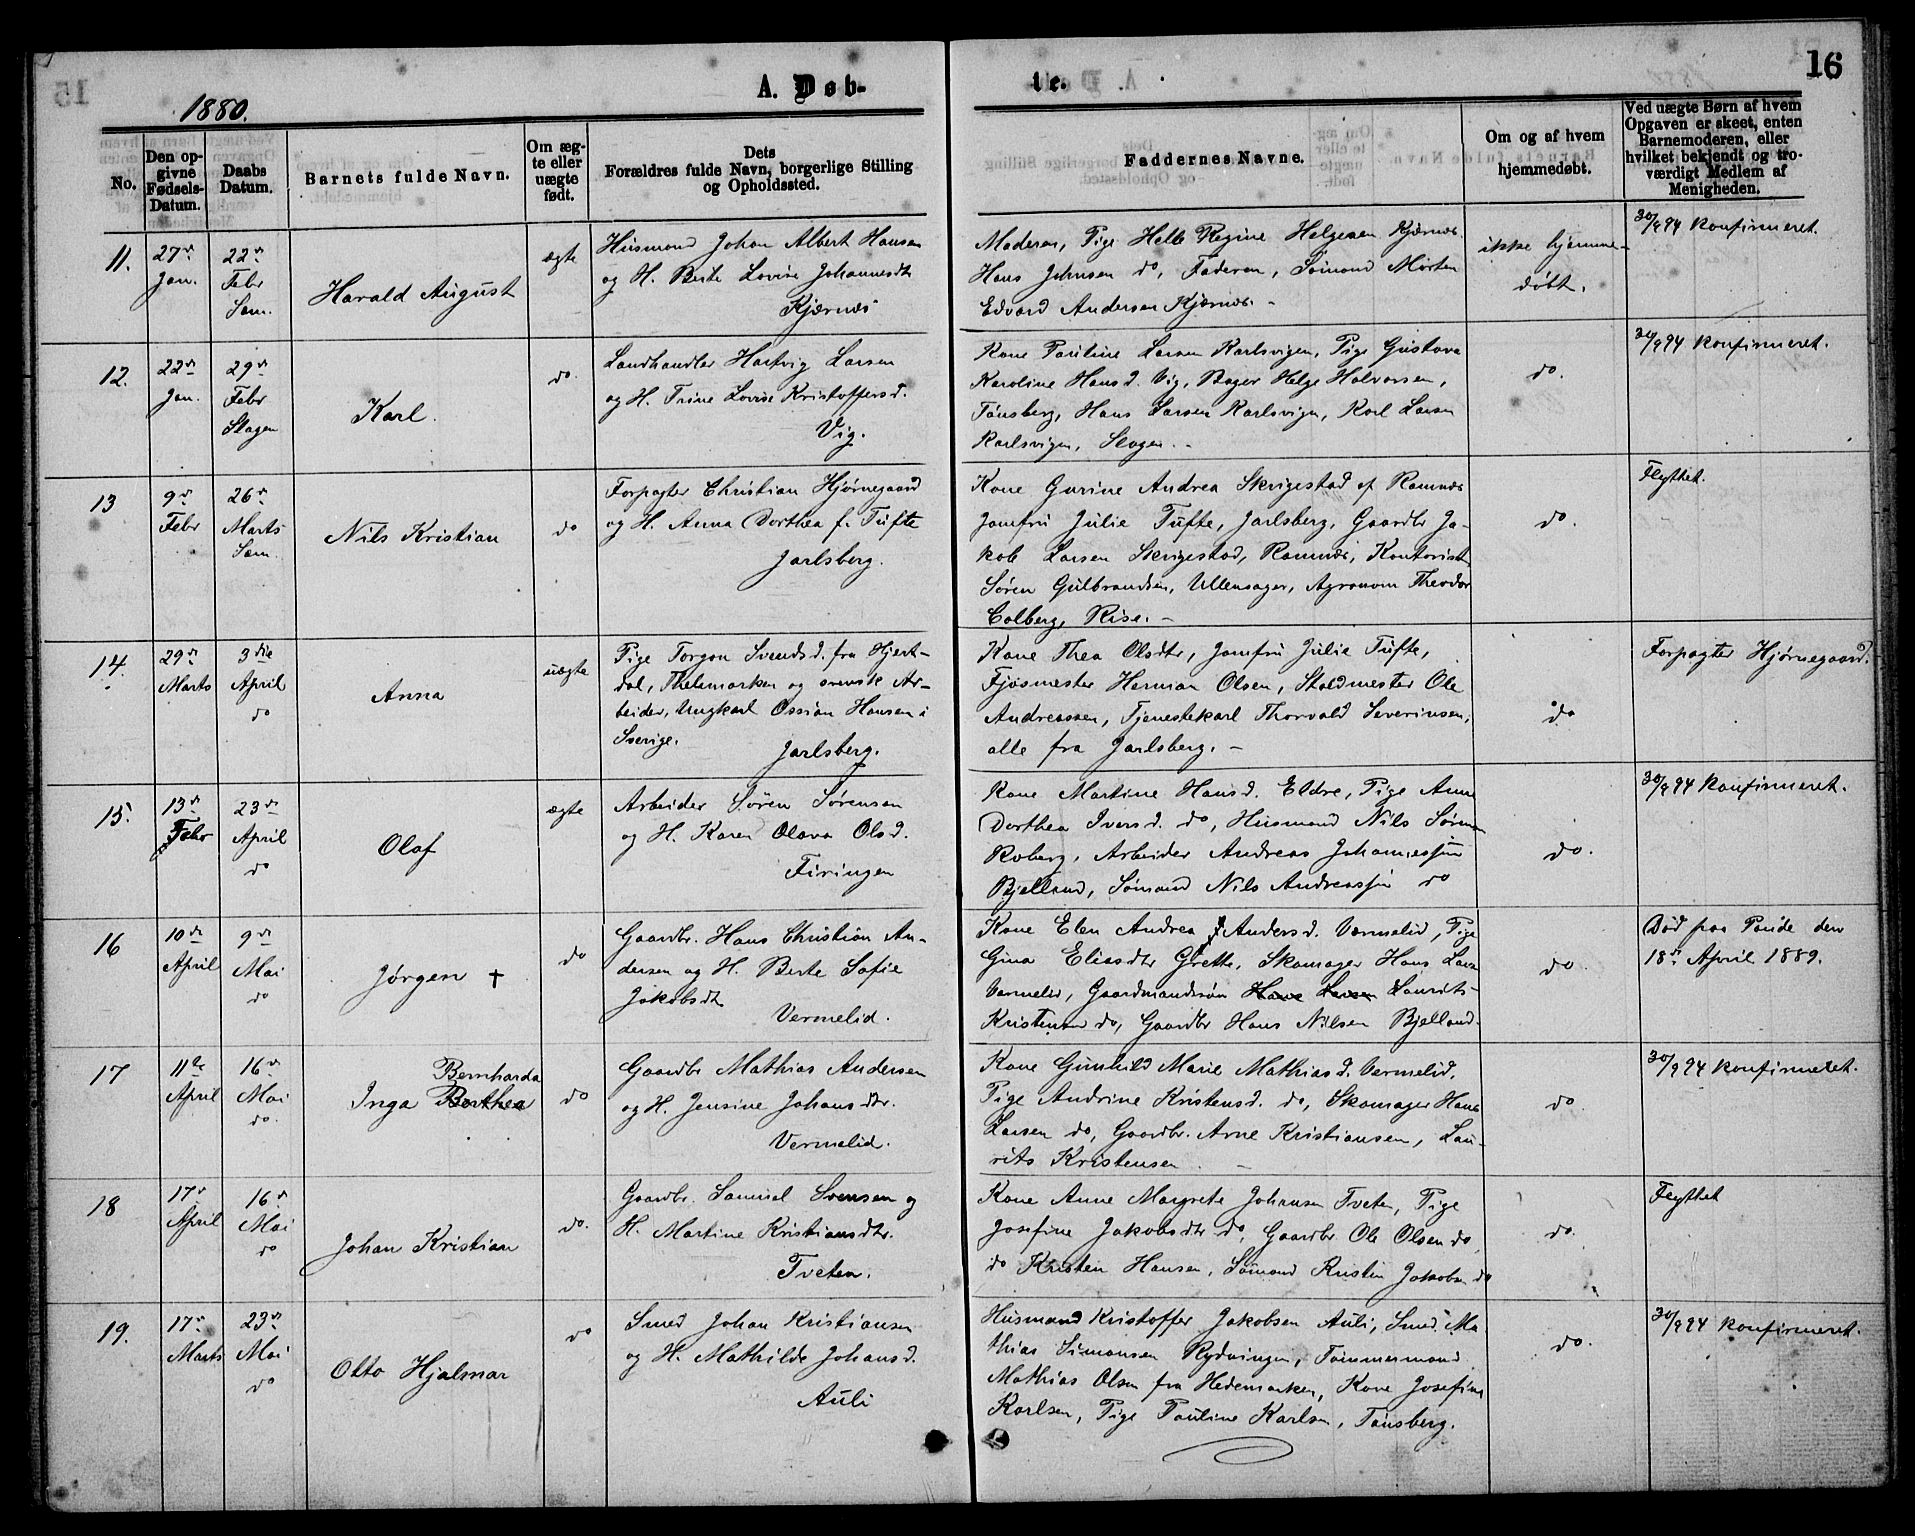 1880.
A. Døb-
te.
16
No.
Den opgivne Fødsels-Datum.
Daabs Datum.
Barnets fulde Navn.
Om ægte eller uægte født.
Dets Forældres fulde Navn, borgerlige Stilling og Opholdssted.
Faddernes Navne.
Om og af hvem hjemmedøbt.
Ved uægte Børn af hvem Opgaven er skeet, enten Barnemoderen, eller hvilket bekjendt og troværdigt Medlem af Menigheden.
11.
27de Jan.
22de Febr Sem.
Harald August
ægte
Husmand Johan Albert Hansen
og H. Berte Lovise Johannesdt
Kjærnæs
Moderen, Pige Helle Regine Helgesen Kjærnæs.
Hans Johnsen do, Faderen, Sømand Morten
Edvard Andersen Kjærnæs. -
ikke hjemme-
døbt.
30/9 94 Konfirmeret.
12.
22de Jan.
29de Febr Slagen
Karl.
do.
Landhandler Hartvig Larsen
og H. Trine Lovise Kristoffersd.
Vig.
Kone Pauline Larsen Karlsvigen, Pige Gustava
Karoline Hansd. Vig, Bager Helge Halvorsen,
Tønsberg, Hans Larsen Karlsvigen, Karl Larsen
Karlsvigen, Slagen. -
do.
30/9 94 Konfirmeret.
13
9de Febr
26de Marts Sem.
Nils Kristian
do
Forpagter Christian Hjørnegaard
og H. Anna Dorthea f. Tufte
Jarlsberg.
Kone Gurine Andrea Skrigestad af Ramnæs
Jomfru Julie Tufte, Jarlsberg, Gaardbr Ja-
kob Larsen Skrigestad, Ramnæs, Kontorist
Søren Gulbrandsen, Ullensager, Agronom Theodor
Colberg, Rise. -
do.
Flyttet.
14.
29de Marts
3die April do
Anna
uægte
Pige Torgon Svendsd. fra Hjert-
dal, Thelemarken og svensk Ar-
beider, Ungkarl Ossian Hansen i
Sverige.
Jarlsberg.
Kone Thea Olsdtr, Jomfru Julie Tufte,
Fjøsmester Herman Olsen, Staldmester Ole
Andreassen, Tjenestekarl Thorvald Severinsen,
alle fra Jarlsberg. -
do
Forpagter Hjørnegaard.
15.
13de Febr
23de April do
Olaf
ægte
Arbeider Søren Sørensen
og H. Karen Olava Olsd.
Firingen
Kone Martine Hansd. Eldre, Pige Anne
Dorthea Iversd. do, Husmand Nils Sørensen
Roberg, Arbeider Andreas Johannessen
Bjelland, Sømand Nils Andreassen do
do.
30/9 94 Konfirmeret.
16
10de April
9de Mai do
Jørgen †
do
Gaardbr. Hans Christian An-
dersen og H. Berte Sofie
Jakobsdt
Vermelid.
Kone Elen Andrea f Andersd. Vermelid, Pige
Gina Eliasdtr Grette, Skomager Hans Larsen
Vermelid, Gaardmandssøn Hans Larsen Laurits
Kristensen do, Gaardbr Hans Nilsen Bjelland.
do.
Død paa Pande den
18de April 1889.
17
11te April
16de Mai do.
Bernharda
Inga Berthea
do
Gaardbr Mathias Andersen
og H. Jensine Johansdtr.
Vermelid.
Kone Gunhild Marie Mathiasd. Vermelid,
Pige Andrine Kristensd. do, Skomager Hans
Larsen do, Gaardbr. Arne Kristiansen, Lau-
rits Kristensen. -
do.
30/9 94 Konfirmeret.
18
17de April
16de Mai do
Johan Kristian
do.
Gaardbr. Samuel Svensen og
H. Martine Kristiansdtr.
Tveten.
Kone Anne Margrete Johansen Tveten, Pige
Josefine Jakobsdtr do, Gaardbr Ole Olsen do,
do Kristen Hansen, Sømand Kristen Jakobsen do
do.
Flyttet
19.
17de Marts
23de Mai do
Otto Hjalmar
do
Smed Johan Kristiansen
og H. Mathilde Johansd.
Auli
Husmand Kristoffer Jakobsen Auli, Smed Ma-
thias Simonsen Rydningen, Tømmermand
Mathias Olsen fra Hedemarken, Kone Josefine
Karlsen, Pige Pauline Karlsen, Tønsberg.
do.
30/9 94 Konfirmeret.